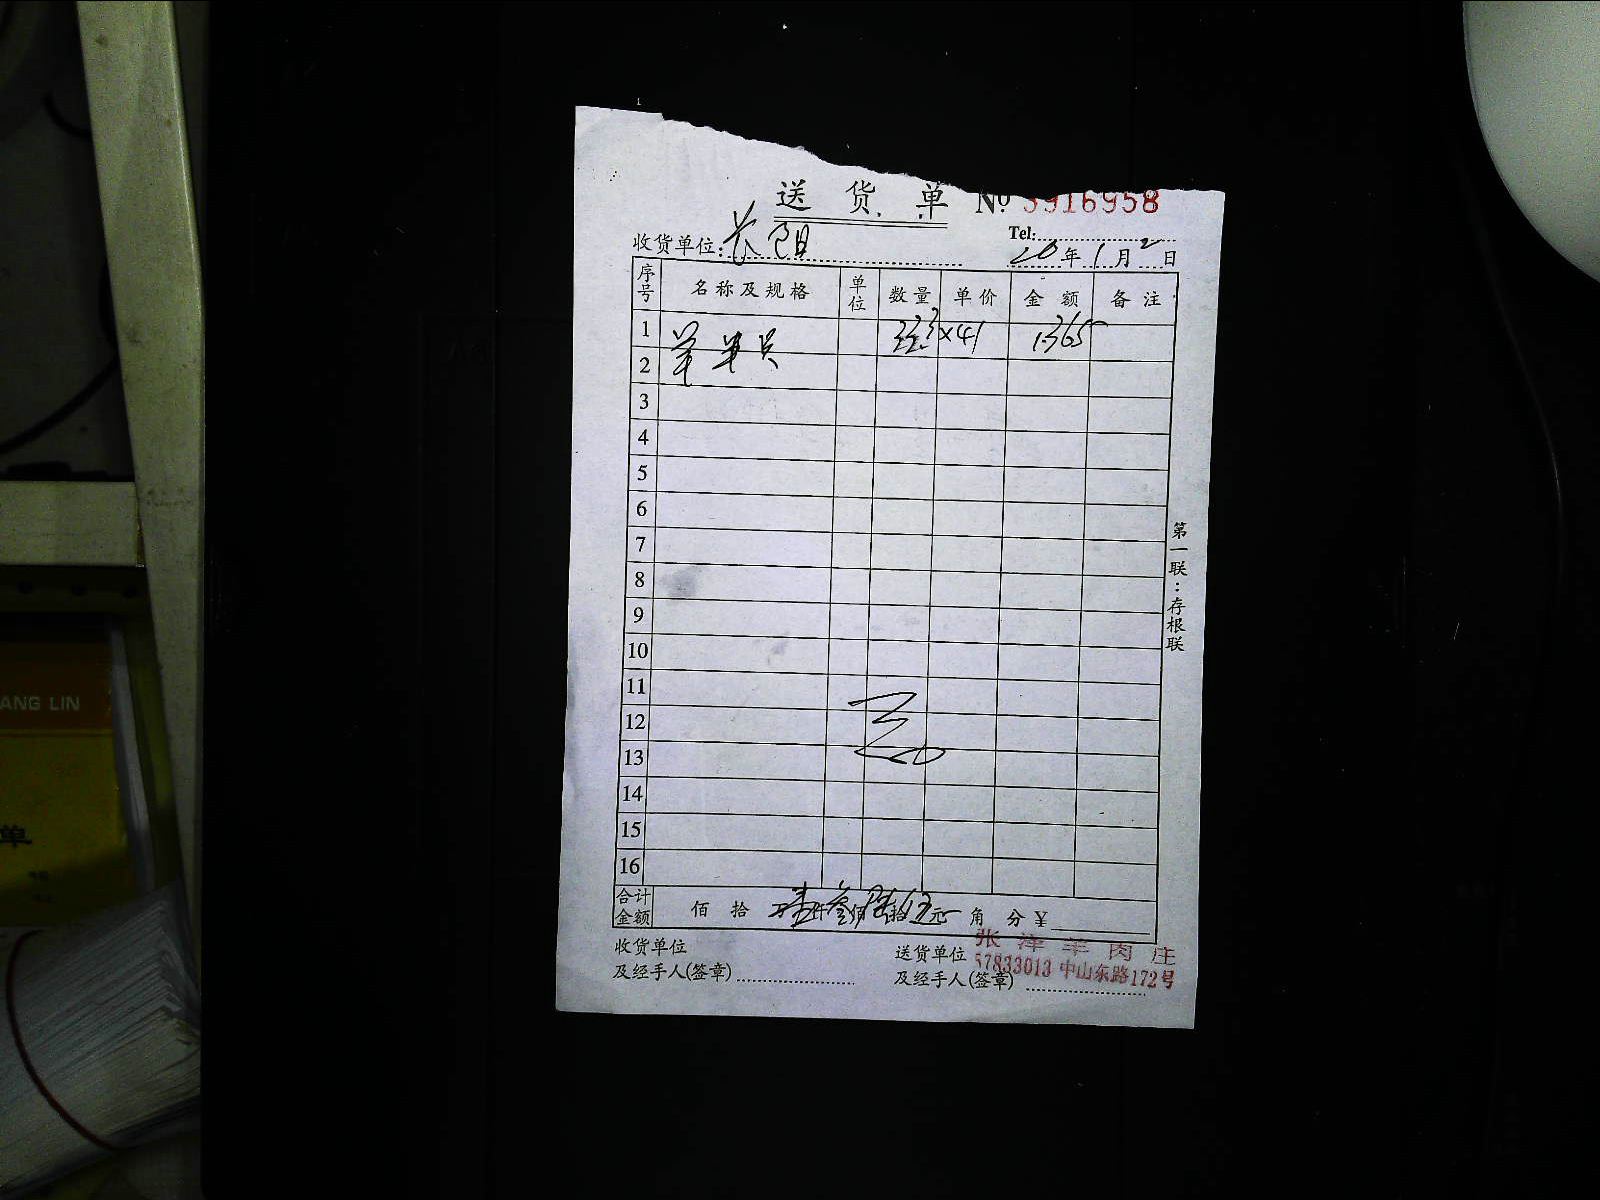 送货单 № 3916958
Tel:
收货单位: 长阳
20年1月2日
序号 名称及规格 单位 数量 单价 金额 备注
1 羊 33.3 ×41 1365
2
3
4
5
6
7
8
9
10
11
12
13
14
15
16
合计金额 佰 拾 万壹仟叁佰陆拾伍元 角 分 ¥
收货单位
及经手人(签章)
送货单位
及经手人(签章)
张泽羊肉庄
57833013 中山东路172号
第一联:存根联
ANG LIN
单